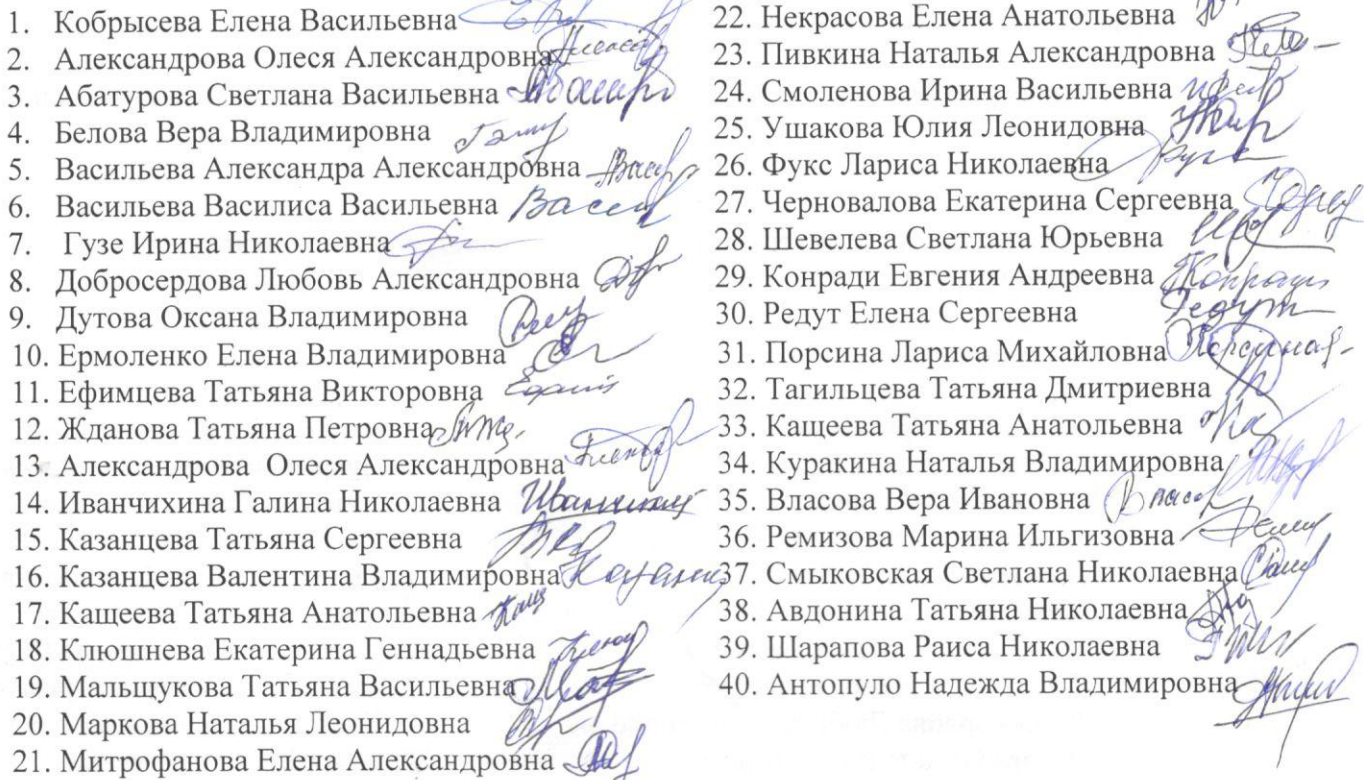 1. Кобрысева Елена Васильевна
2. Александрова Олеся Александровна
3. Абатурова Светлана Васильевна
4. Белова Вера Владимировна
5. Васильева Александра Александровна
6. Васильева Василиса Васильевна
7. Гузе Ирина Николаевна
8. Добросердова Любовь Александровна
9. Дутова Оксана Владимировна
10. Ермоленко Елена Владимировна
11. Ефимцева Татьяна Викторовна
12. Жданова Татьяна Петровна
13. Александрова Олеся Александровна
14. Иванчихина Галина Николаевна
15. Казанцева Татьяна Сергеевна
16. Казанцева Валентина Владимировна
17. Кащеева Татьяна Анатольевна
18. Клюшнева Екатерина Геннадьевна
19. Мальщукова Татьяна Васильевна
20. Маркова Наталья Леонидовна
21. Митрофанова Елена Александровна
22. Некрасова Елена Анатольевна
23. Пивкина Наталья Александровна
24. Смоленова Ирина Васильевна
25. Ушакова Юлия Леонидовна
26. Фукс Лариса Николаевна
27. Черновалова Екатерина Сергеевна
28. Шевелева Светлана Юрьевна
29. Конради Евгения Андреевна
30. Редут Елена Сергеевна
31. Порсина Лариса Михайловна
32. Тагильцева Татьяна Дмитриевна
33. Кащеева Татьяна Анатольевна
34. Куракина Наталья Владимировна
35. Власова Вера Ивановна
36. Ремизова Марина Ильгизовна
37. Смыковская Светлана Николаевна
38. Авдонина Татьяна Николаевна
39. Шарапова Раиса Николаевна
40. Антопуло Надежда Владимировна